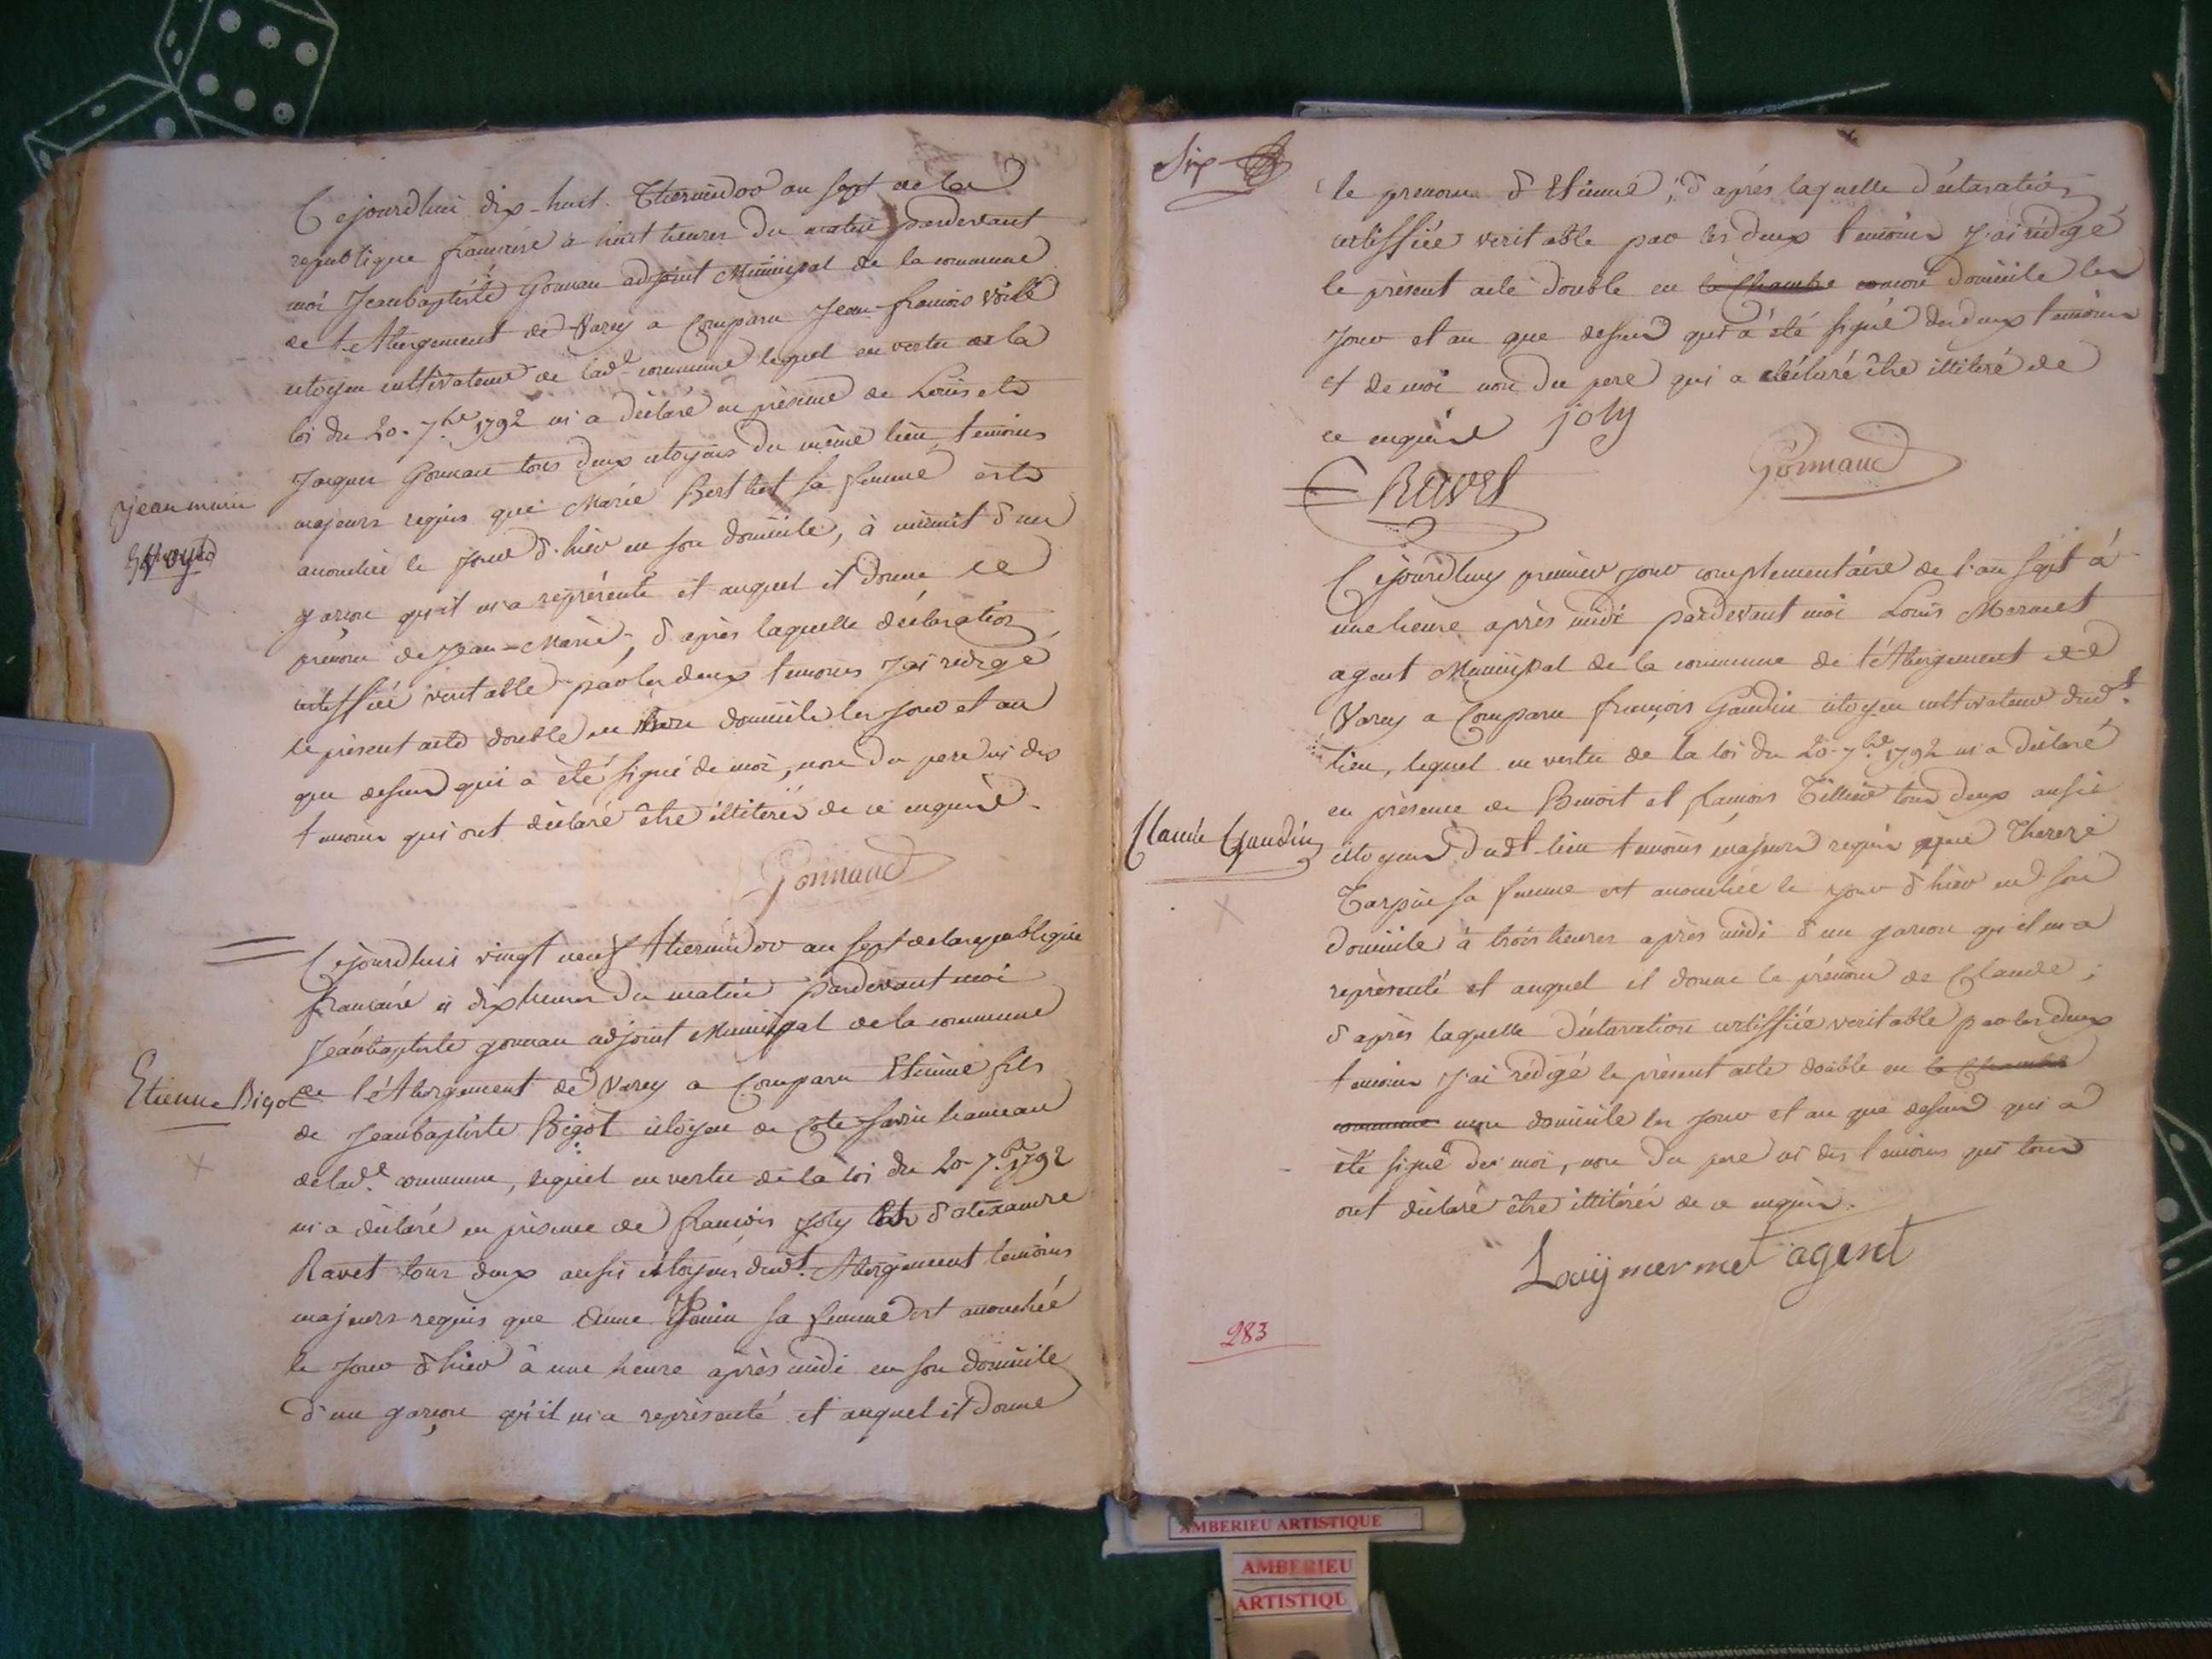 Cejourdhui dix-huit Thermidor an sept de la
republique francaise à huit heures du matin pardevant
moi Jeanbaptiste Gonnau adjoint Municipal de la commune
de l'Abergement de Varey a Comparu Jean-francois
citoyen cultivateur de lad.e commune lequel en vertu de la
loi du 20. 7.bre 1792 m'a déclaré en présence de Louis et
Jacques Gonnau tous deux citoyens du même lieu, temoins
majeurs requis que Marie Berthet sa femme est
accouchée le jour d'hier en son domicile, à minuit d'un
garcon qu'il m'a représenté et auquel il donne le
prenom de Jean-Marie; d'après laquelle déclaration
certiffiée veritable par les deux temoins J'ai rédigé
le présent acte double en mon domicile les jour et an
que dessus qui à été signé de moi, non du pere ni des
temoins qui ont déclaré être illiterés de ce enquis.
Gonnaud
Cejourdhui vingt neuf thermidor an sept de la republique
francaise à dix heures du matin pardevant moi
Jeanbaptiste gonnau adjoint Municipal de la commune
Etienne Bigot
de l'Abergement de Varey a Comparu Etienne fils
de Jeanbaptiste Bigot citoyen de Côte-savin hameau
de lad.e commune, lequel en vertu de la loi du 20 7.bre 1792
m'a déclaré en présence de francois Joly et d'alexandre
Ravet tous deux aussi citoyens dud.t Abergement temoins
majeurs requis que Anne Janin sa femme est accouchée
le jour d'hier à une heure après midi en son domicile
d'un garçon qu'il m'a représenté et auquel il donne
Six
le prenom d'Etienne; d'après laquelle déclaration
certiffiée veritable par les deux temoins J'ai rédigé
le présent acte double en la Chambe comon domicile les
jour et an que dessus qui a été signé des deux temoins
et de moi non du pere qui a déclaré être illiteré de
ce enquis joly
Ravet
Gonnaud
Cejourdhuy premier jour complementaire de l'an sept à
une heure après midi pardevant moi Louis Mermet
agent Municipal de la commune de l'Abergement de
Varey a Comparu françois Gaudin citoyen cultivateur dud.t
lieu, lequel en vertu de la loi du 20. 7.bre 1792 m'a déclaré
en présence de Benoit et francois Tillier tous deux aussi
Claude Gaudin
citoyens dudt lieu temoins majeurs requis que Thereze
Tarpin sa femme est accouchée le jour d'hier en son
domicile à trois heures après midi d'un garcon qu'il m'a
représenté et auquel il donne le prénom de Claude;
d'après laquelle déclaration certiffiée veritable par les deux
temoins J'ai rédigé le présent acte double en la Chambe
commune mon domicile les jour et an que dessus qui a
été signé de moi, non du pere ni des temoins qui tous
ont déclaré être illitérés de ce enquis.
Louy mermet agent
283
AMBERIEU ARTISTIQUE
AMBERIEU
ARTISTIQU